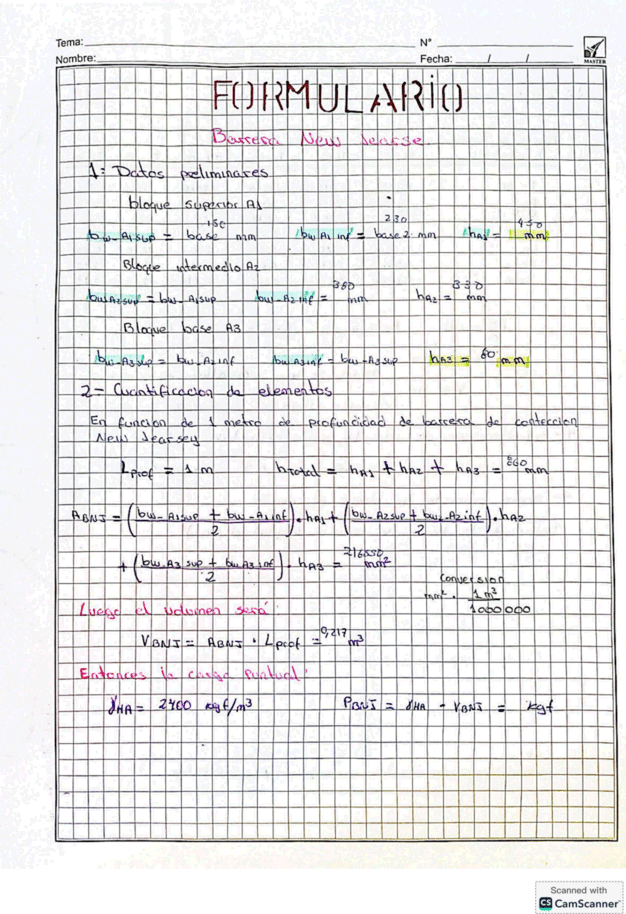 Tema:
N°
Nombre:
Fecha: / /
MASTER
FORMULARIO
Barrera New Jearse.
1= Datos preliminares
bloque superior A1
bw-A1sup = base 150 mm bw A1 inf = base 2 230 mm hA1 = 450 mm
Bloque intermedio A2
bw A2sup = bw-A1sup bw-A2 inf = 380 mm hA2 = 330 mm
Bloque base A3
bw-A3sup = bw-A2inf bw A3inf = bw-A3sup hA3 = 80 mm
2- Cuantificacion de elementos
En funcion de 1 metro de profundidad de barrera de conteccion
New Jearsey
Lprof = 1 m htotal = hA1 + hA2 + hA3 = 860 mm
ABNJ = ((bw-A1sup + bw-A1inf)/2) . hA1 + ((bw-A2sup + bw-A2inf)/2) . hA2
+ ((bw.A3 sup + bw A3 inf)/2) . hA3 = 216550 mm²
Conversion
mm² . 1 m³/1000000
Luego el volumen será
VBNJ = ABNJ . Lprof = 0,217 m³
Entonces la carga Puntual:
γHA = 2400 kgf/m³ PBNJ = γHA - VBNJ = kgf
Scanned with
CS CamScanner